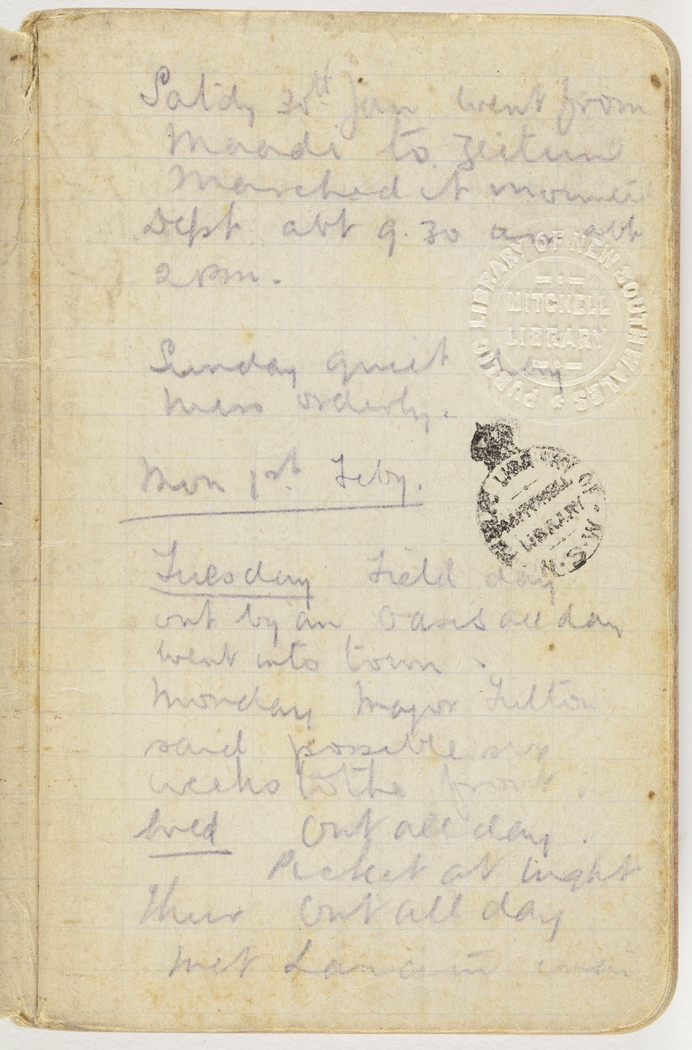 Satdy 30th Jan went from
Maadi to Zeitun
Marched it
Dept abt 9.30 am abt
2 pm.
Sunday quiet day
Mess orderly.
Mon 1st Feby.
Tuesday Field day
out by an Oasis all day
went into town.
Monday Major Fulton
said possible six
weeks to the front.
Wed Out all day.
Picket at night
Thur Out all day
met
PUBLIC LIBRARY OF NEW SOUTH WALES
MITCHELL
LIBRARY
PUBLIC LIBRARY OF N.S.W.
MITCHELL
LIBRARY